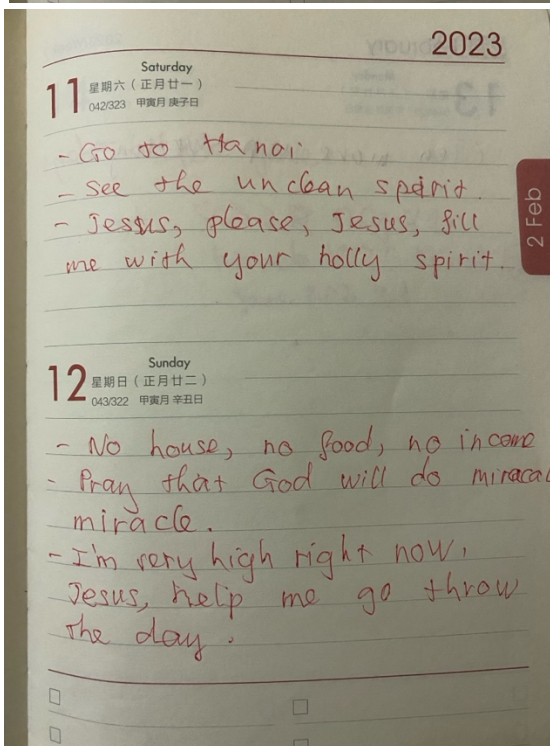 2023
Saturday
11 星期六（正月廿一）
042/323 甲寅月 庚子日
- Go to Hanoi
- See the unclean spirit.
- Jessus, please, Jesus, fill
me with your holly spirit.
2 Feb
Sunday
12 星期日（正月廿二）
043/322 甲寅月 辛丑日
- No house, no food, no income
- Pray that God will do miracal
miracle.
- I'm very high right now,
Jesus, help me go throw
the day.